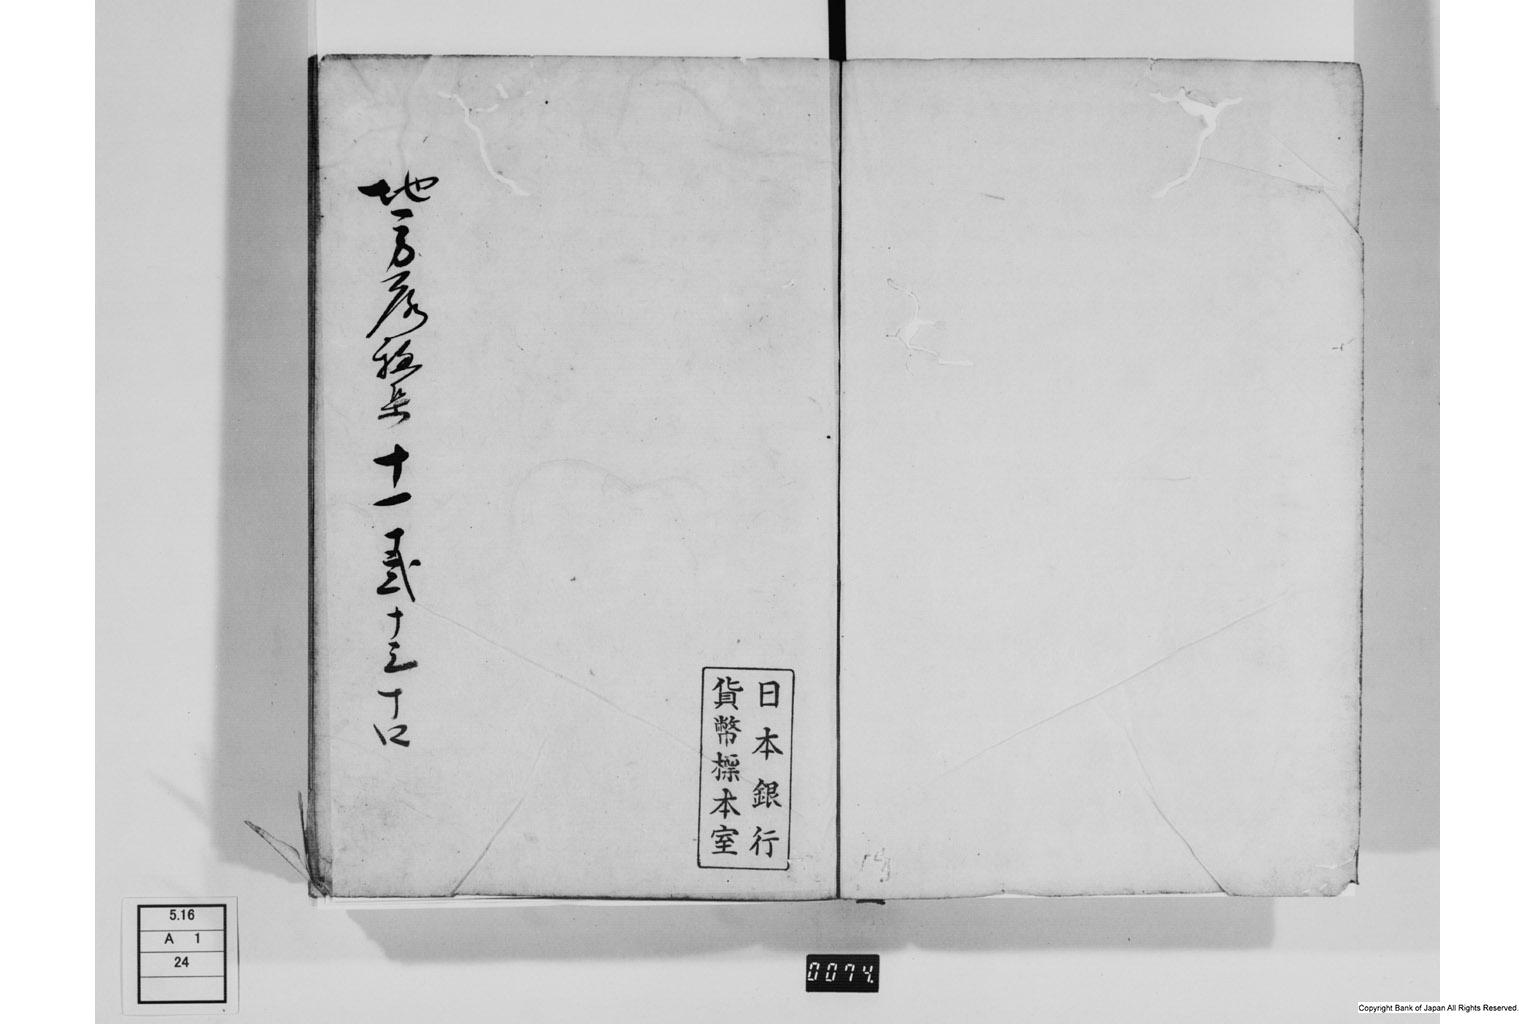 地方落穂集 十一 十弐 十三 十四
日本銀行
貨幣標本室
5.16
A 1
24
0074
Copyright Bank of Japan All Rights Reserved.